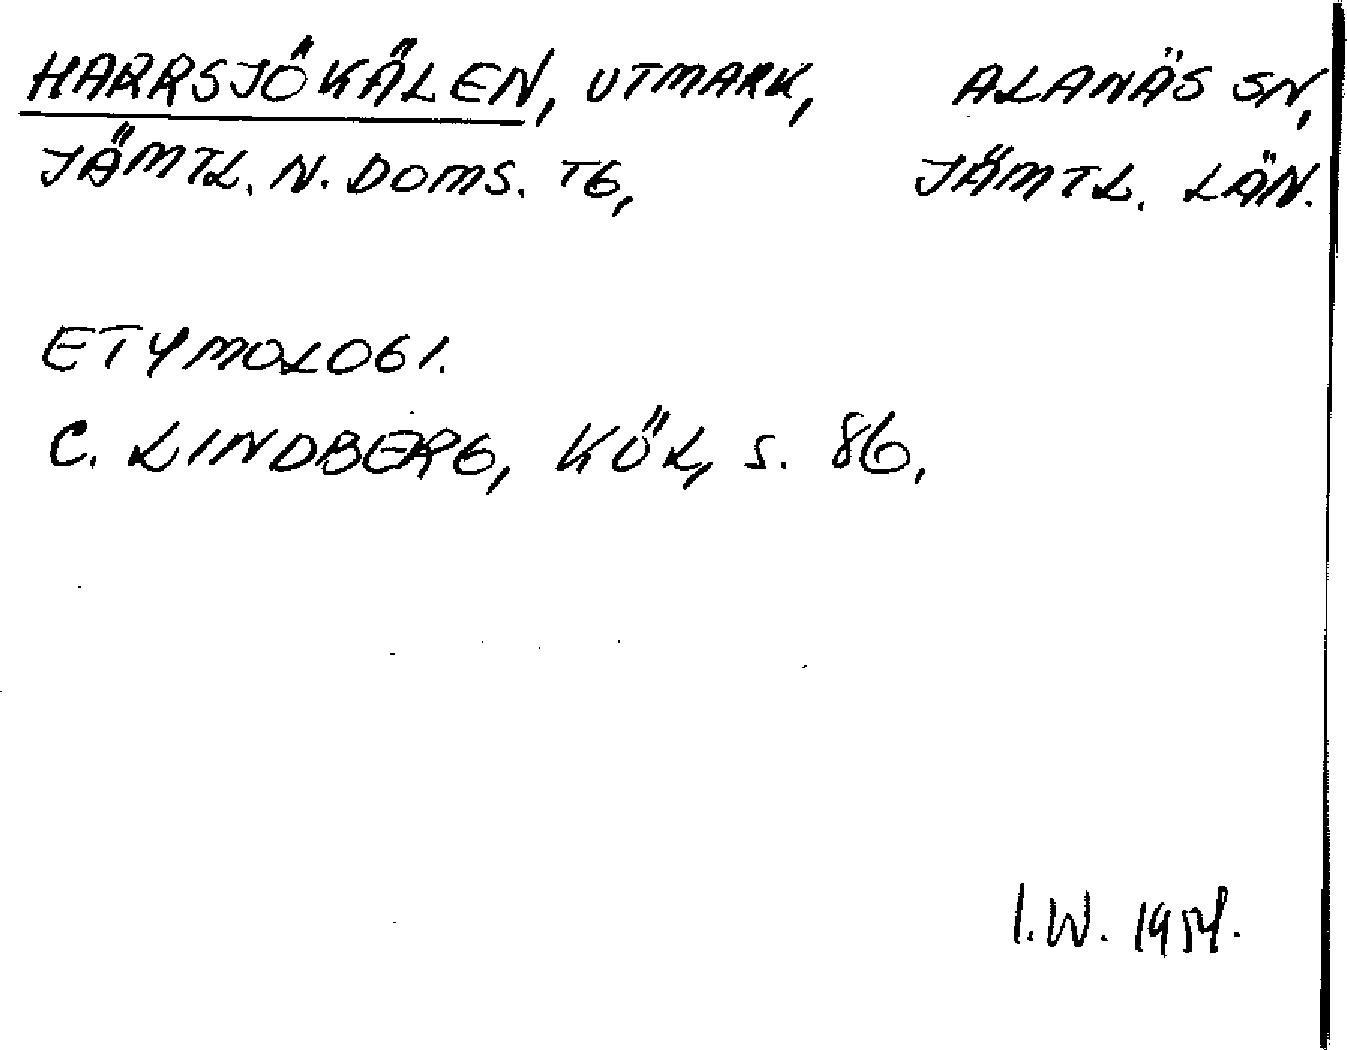 HARRSJÖKÄLEN, UTMARK, ALANÄS SN,
JÄMTL. N. DOMS. TG, JÄMTL. LÄN.
ETYMOLOGI.
C. LINDBERG, KÖL, S. 86.
I.W. 1954.